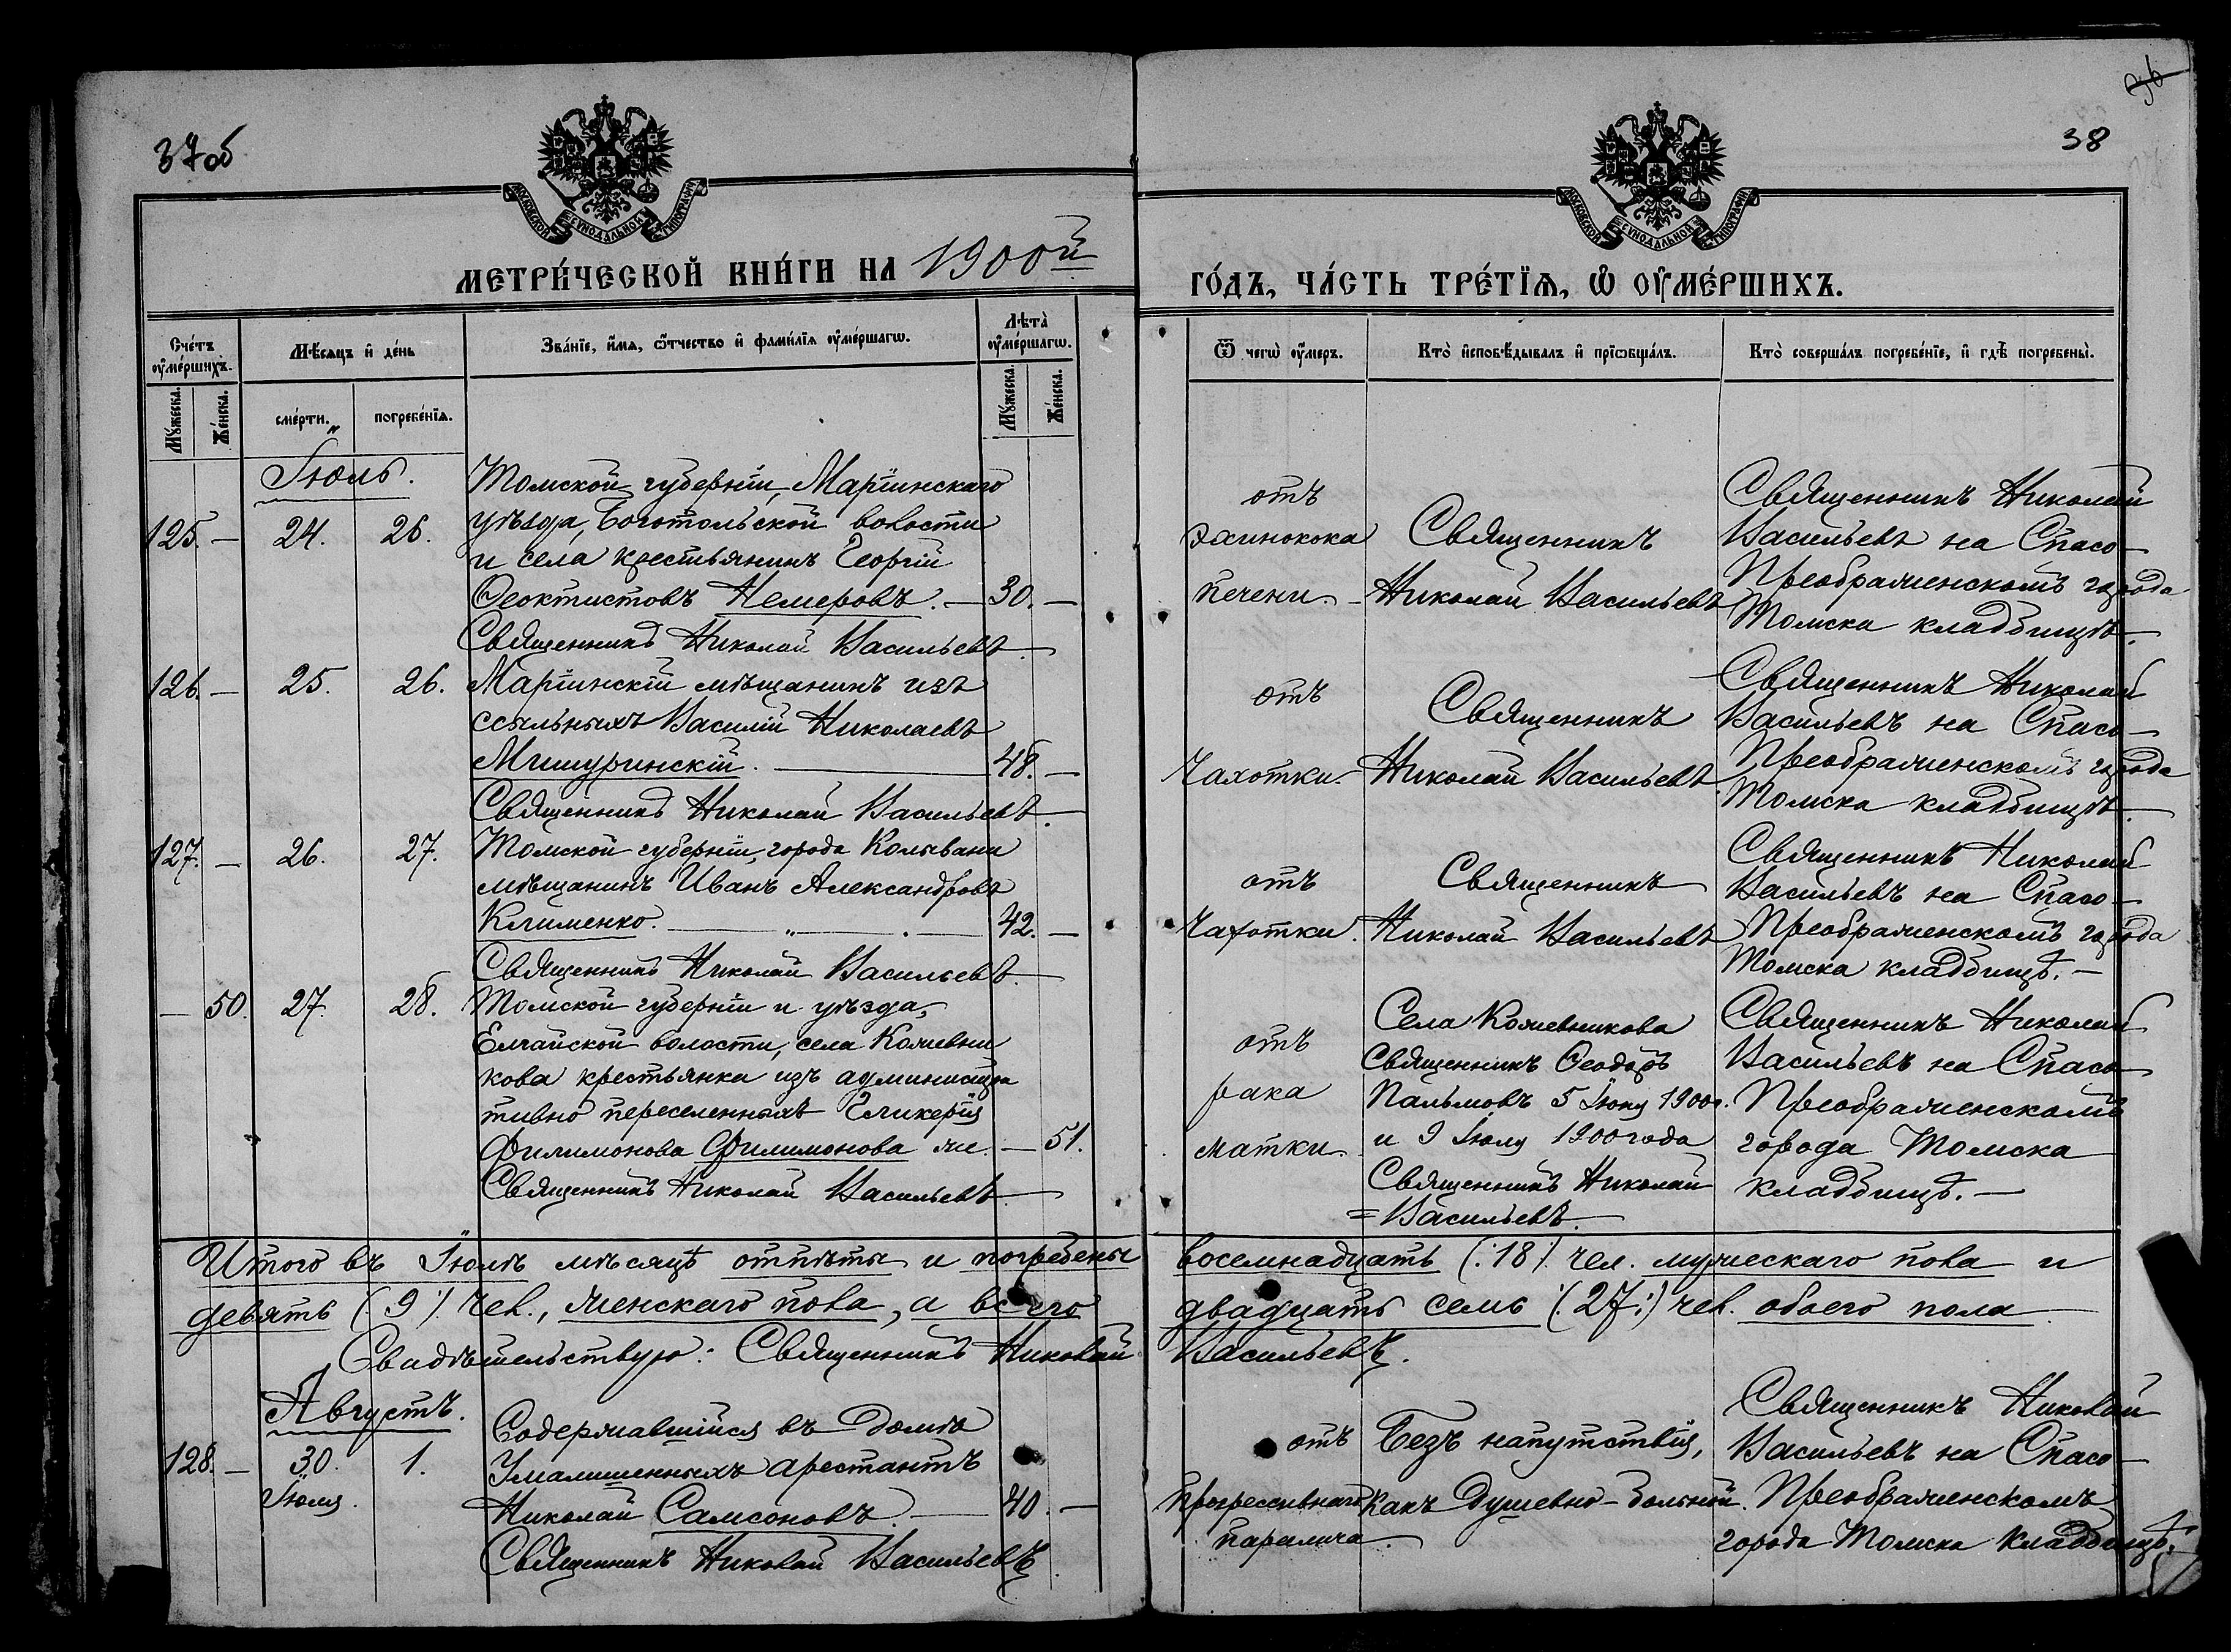 37об
38
36
МОСКОВСКОЙ СѴНОДАЛЬНОЙ ТИПОГРАФІИ
МОСКОВСКОЙ СѴНОДАЛЬНОЙ ТИПОГРАФІИ
МЕТРИ́ЧЕСКОЙ КНИ́ГИ НА 1900й
ГО́ДЪ, ЧА́СТЬ ТРЕ́ТІѦ, Ѡ ОУМЕ́РШИХЪ.
Сче́тъ оуме́ршихъ.
Мꙋжеска.
Же́нска.
Мѣ́сѧцъ и҆ де́нь
сме́рти.
погребе́нїѧ.
Зва́нїе, и҆́мѧ, ѻ҆́тчество и҆ фами́лїѧ оуме́ршагѡ.
Лѣта̀ оуме́ршагѡ.
Мꙋжеска.
Же́нска.
Ѿ чегѡ̀ оу҆́меръ.
Кто̀ и҆сповѣ́дывалъ и҆ прїѡбща́лъ.
Кто̀ соверша́лъ погребе́нїе, и҆ гдѣ̀ погребены̀.
Іюль.
125. — 24. 26.
Томской губерніи, Маріинскаго
уѣзда, Боготольской волости
и села крестьянинъ Георгій
Ѳеоктистовъ Немеровъ. — 30. —
Священникъ Николай Васильевъ.
отъ
эхинокока
печени.
Священникъ
Николай Васильевъ
Священникъ Николай
Васильевъ на Спасо-
Преображенскомъ города
Томска кладбищѣ.
126. — 25. 26.
Маріинскій мѣщанинъ изъ
ссыльныхъ Василій Николаевъ
Мишуринскій. — 48. —
Священникъ Николай Васильевъ.
отъ
Чахотки.
Священникъ
Николай Васильевъ.
Священникъ Николай
Васильевъ на Спасо-
Преображенскомъ города
Томска кладбищѣ.
127. — 26. 27.
Томской губерніи, города Колывани
мѣщанинъ Иванъ Александровъ
Клименко. — 42. —
Священникъ Николай Васильевъ.
отъ
Чахотки.
Священникъ
Николай Васильевъ
Священникъ Николай
Васильевъ на Спасо-
Преображенскомъ города
Томска кладбищѣ. —
— 50. 27. 28.
Томской губерніи и уѣзда,
Елгайской волости, села Кожевни
кова крестьянка изъ администра
тивно переселенныхъ Гликерія
Филимонова Филимонова же. — 51.
Священникъ Николай Васильевъ.
отъ
рака
матки.
Села Кожевникова
Священникъ Ѳеодоръ
Пальмовъ 5 Іюня 1900г.
и 9 Іюля 1900 года
Священникъ Николай
=Васильевъ.
Священникъ Николай
Васильевъ на Спасо-
Преображенскомъ
города Томска
кладбищѣ. —
Итого въ Іюлѣ мѣсяцѣ отпѣты и погребены восемнадцать (:18:) чел. мужескаго пола и
девять (:9:) чел., женскаго пола, а всего двадцать семь (:27:) чел. обоего пола.
Свидѣтельствую: Священникъ Николай Васильевъ.
Августъ.
128. — 30. Іюля. 1.
Содержавшійся въ домѣ
Умалишенныхъ арестантъ
Николай Самсоновъ. — 40. —
Священникъ Николай Васильевъ
отъ
прогрессивнаго
паралича.
Безъ напутствія,
какъ душевно-больной.
Священникъ Николай
Васильевъ на Спасо-
Преображенскомъ
города Томска кладбищѣ.